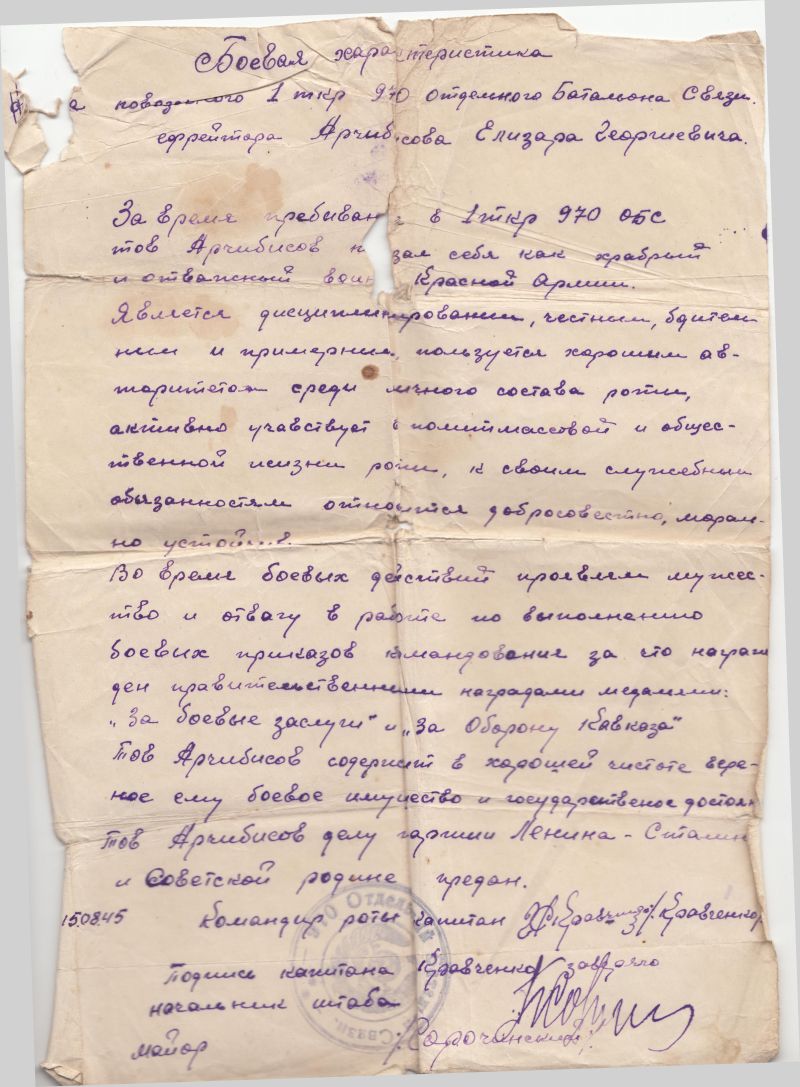 Боевая характеристика
На повозочного 1 ткр 970 отдельного Батальона Связи.
ефрейтора Арчибисова Елизара Георгиевича.
За время пребывания в 1 ткр 970 ОБС
тов Арчибисов показал себя как храбрый
и отважный воин Красной Армии.
Является дисциплинированим, честним, бдитель-
ним и примерним, пользуется хорошим ав-
таритетом среди личного состава роти,
активно учавствует в политмассовой и общес-
твенной жизни роти, к своим служебним
обязанностям относится добросовестно, мораль-
но устойчив.
Во время боевых действий проявлял мужес-
тво и отвагу в работе по выполнению
боевых приказов командование за что награж
ден правительственними наградами медалями:
„За боевые заслуги" и „За Оборону Кавказа"
Тов Арчибисов содержит в хорошей чистоте вере-
ное ему боевое имущество и государственое достоян
Тов Арчибисов делу партии Ленина - Сталин
и Советской родине предан.
15.08.45 Командир роты капитан /Кравченко/
Подпись капитана Кравченко заверяю
начальник штаба
майор
970 Отдельный Связи